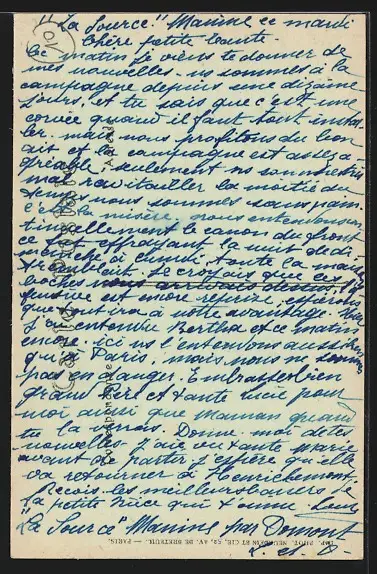 "La Source" Manine ce mardi
Chère petite tante.
Ce matin je viens te donner de
mes nouvelles. ns sommes à la
campagne depuis une dizaine
jours, et tu sais que c'est une
corvée quand il faut tout instal
ler. mais nous profitons du bon
air et la campagne est assez a
gréable; seulement ns sommes très
mal ravitailler la moitié du
temps nous sommes sans pain
c'est la misère. nous entendons con
tinuellement le canon du front
ce fut effroyant la nuit de di
manche à lundi, toute la maison
tremblait. Je croyais que ces
boches nous arrivais dessus, l'of
fensive est encore reprise, espérons
que tout ira à notre avantage.
J'ai entendu Bertha et ce matin
encore. ici ns l'entendons aussi bien
qu'à Paris, mais nous ne sommes
pas en danger. Embrasse bien
grand Père et tante Lucie pour
moi ainsi que maman quand
tu la verras. Donne-moi de tes
nouvelles. J'ai vu tante Marie
avant de partir, j'espère qu'elle
va retourner à Henrichemont.
Reçois les meilleurs baisers de
la petite nièce qui t'aime
"La Source" Manine par Domont
S. et O.
Correspondance
IMP. PHOT. NEURDEIN ET CIE, 52, AV. DE BRETEUIL. — PARIS.